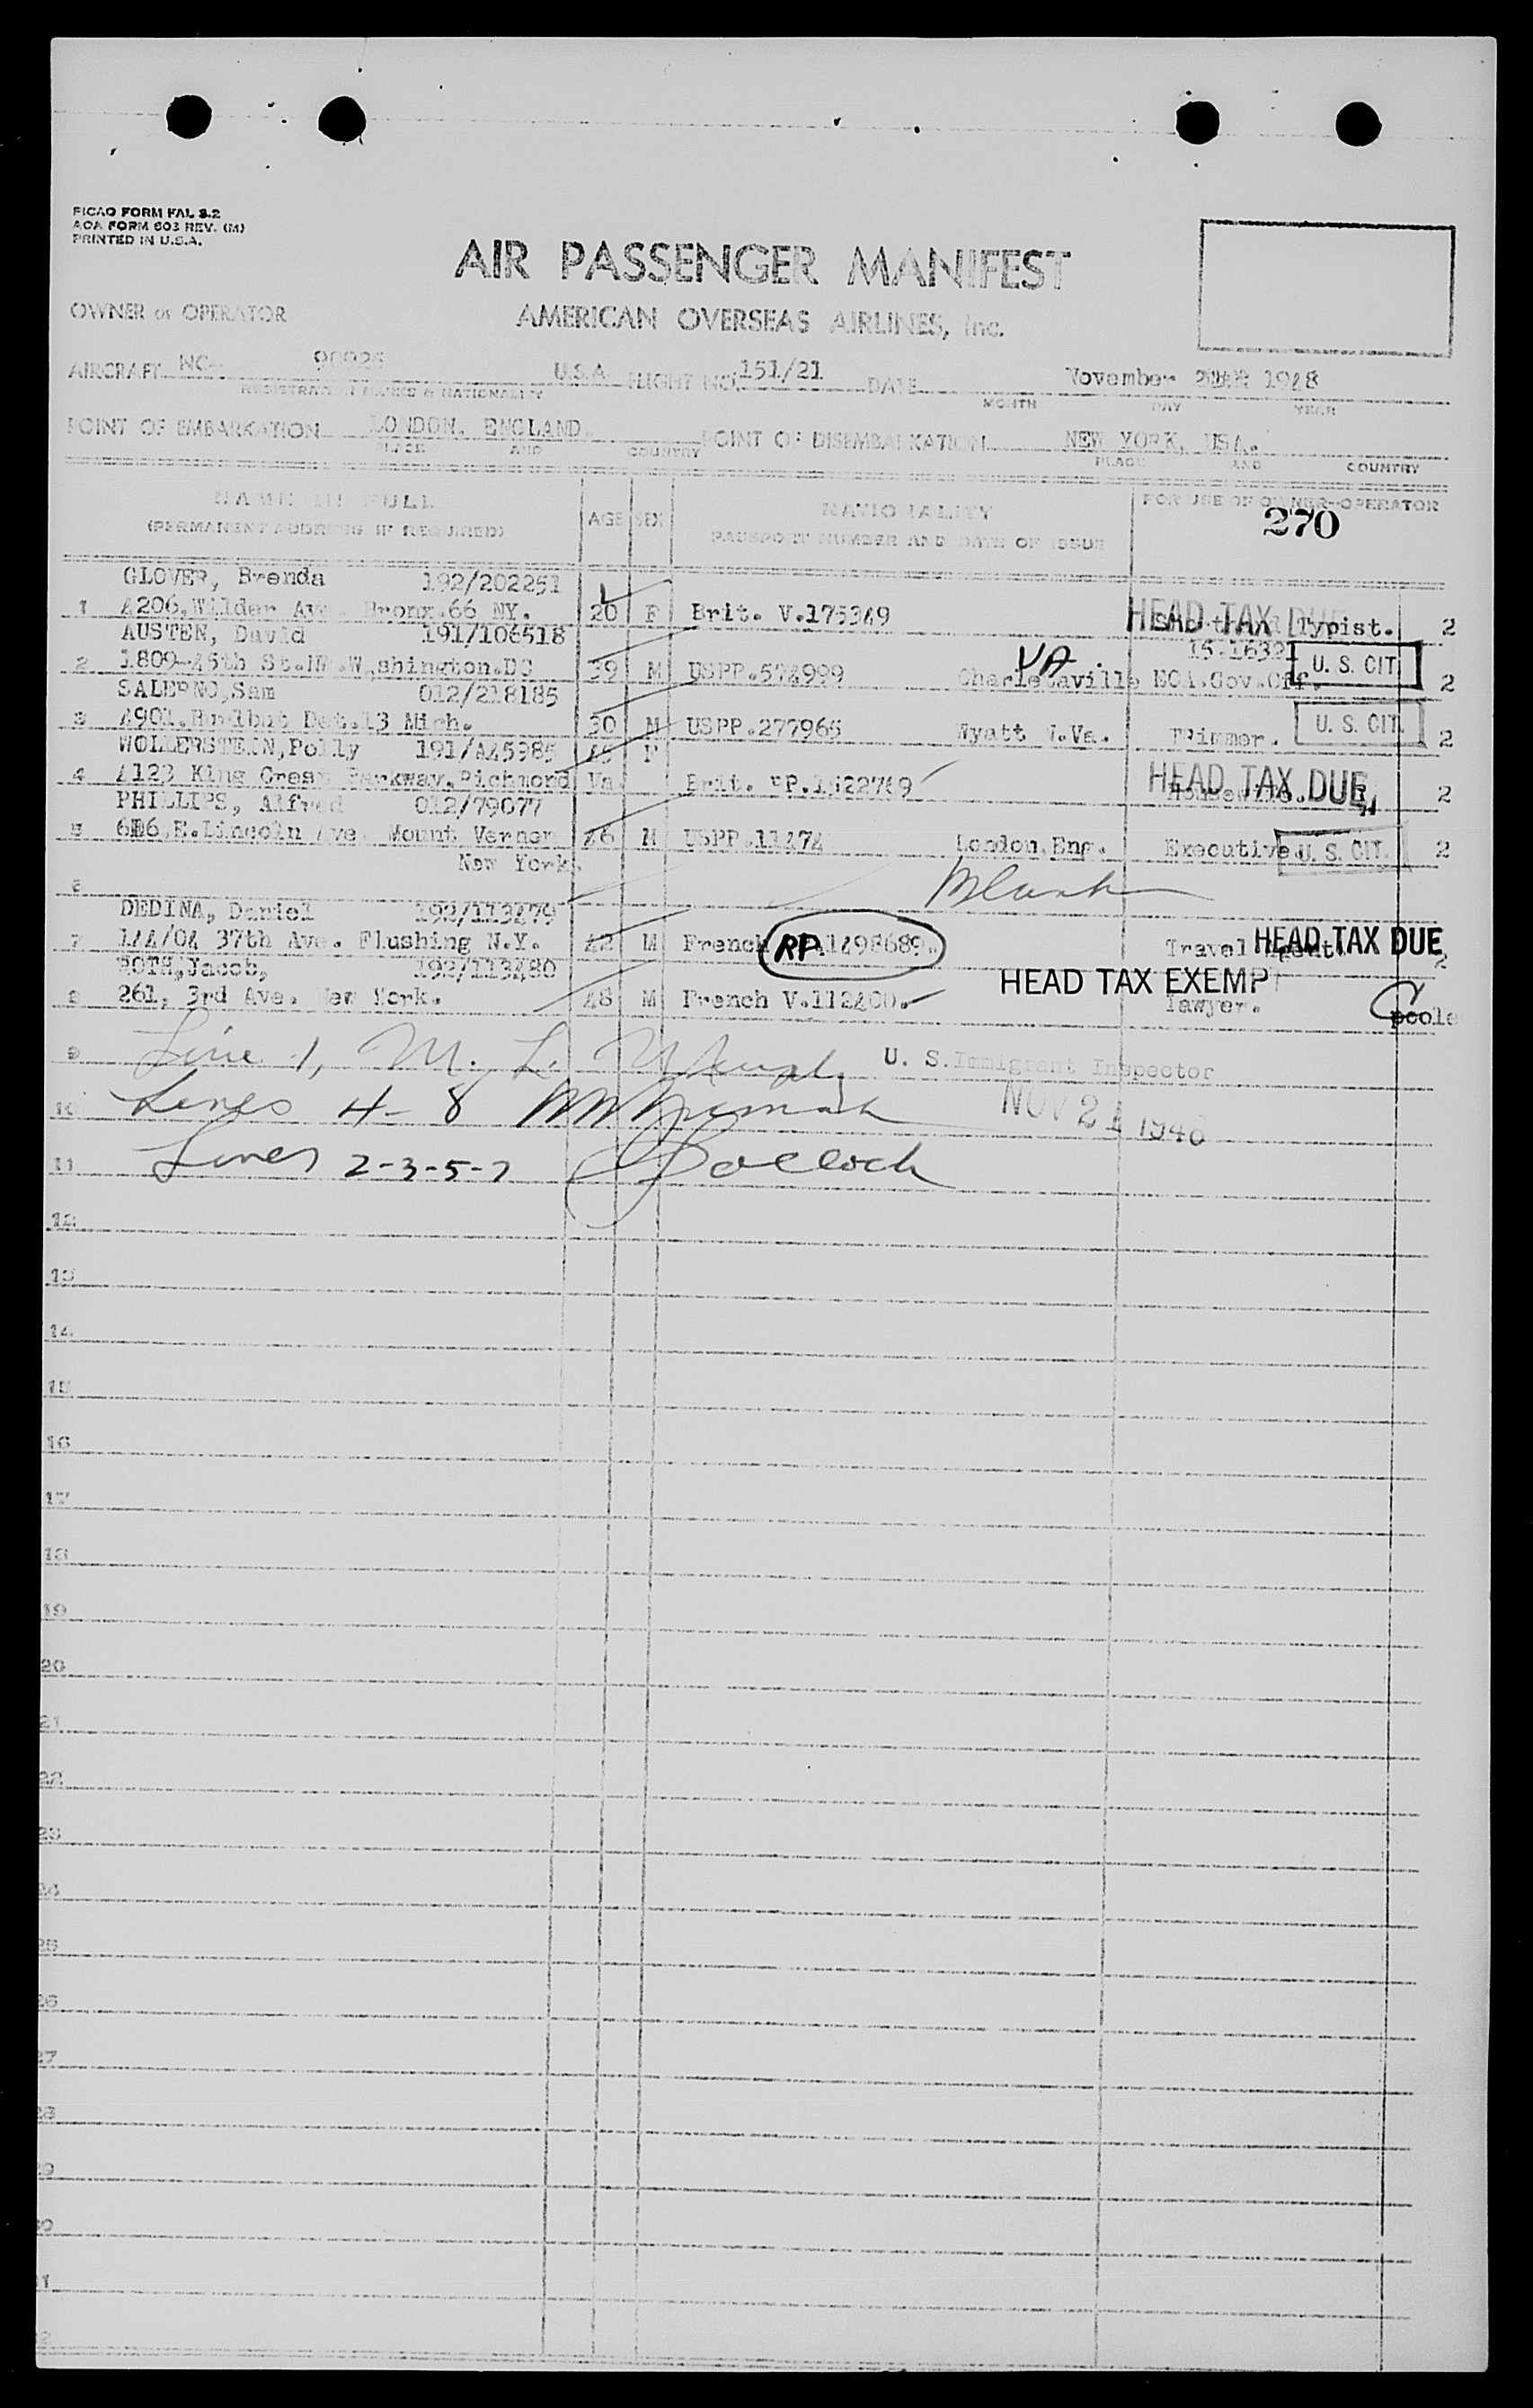 PICAO FORM FAL 8.2
AOA FORM 603 REV. (M)
PRINTED IN U.S.A.
AIR PASSENGER MANIFEST
OWNER or OPERATOR
AMERICAN OVERSEAS AIRLINES, Inc.
AIRCRAFT NC- 90925 U.S.A. FLIGHT NO. 151/21 DATE November 1948
REGISTRATION MARKS & NATIONALITY MONTH DAY YEAR
POINT OF EMBARKATION LONDON. ENGLAND. POINT OF DISEMBARKATION NEW YORK, USA.
PLACE AND COUNTRY PLACE AND COUNTRY
NAME IN FULL AGE SEX NATIONALITY FOR USE OF OWNER-OPERATOR
(PERMANENT ADDRESS IF REQUIRED) PASSPORT NUMBER AND DATE OF ISSUE
270
GLOVER, Brenda 192/202251
1 4206,Wilder Ave. Bronx.66 NY. 20 F Brit. V.175349 HEAD TAX DUE Typist. 2
AUSTEN, David 191/106518
2 1809-45th St.NW.Washington.DC 39 M USPP.574999 VA. Charletaville ECA.Gov.Off. U. S. CIT. 2
SALERNO,Sam 012/218185
3 4901.Hurlbut Det.13 Mich. 30 M USPP.277965 Wyatt W.Va. Trimmer. U. S. CIT. 2
WOLLERSTEIN,Polly 191/A45985 45 F
4 4123 King Crest Parkway.Richmond Va Brit. PP.1522769 Housewife. HEAD TAX DUE 2
PHILLIPS, Alfred 012/79077
5 E.Lincoln Ave. Mount Vernon 46 M USPP.11474 London.Eng. Executive. U. S. CIT. 2
New York.
6 Blank
DEDINA, Daniel 192/113479
7 144/04 37th Ave. Flushing N.Y. 42 M French RP.1498689. Travel Agent. HEAD TAX DUE 2
ROTH,Jacob, 192/113480
8 261, 3rd Ave. New York. 48 M French V.112400. HEAD TAX EXEMPT lawyer.
9 Line 1, M. L. U. S. Immigrant Inspector
10 Lines 4-8 NOV 21 1948
11 Lines 2-3-5-7 Pollock
12
13
14
15
16
17
18
19
20
21
22
23
24
25
26
27
28
29